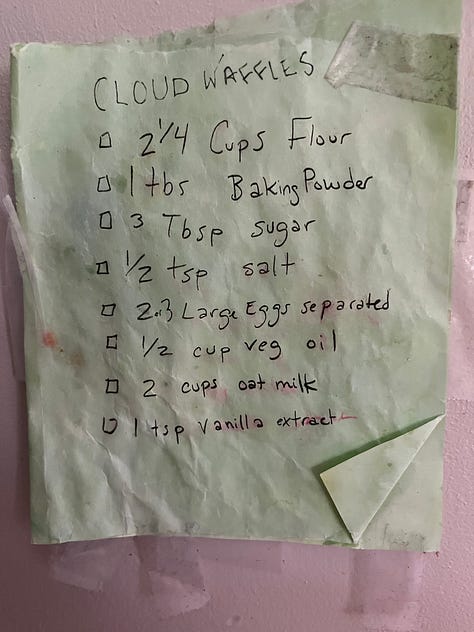 CLOUD WAFFLES
2 1/4 Cups Flour
1 tbs Baking Powder
3 Tbsp sugar
1/2 tsp salt
2or3 Large Eggs separated
1/2 cup veg oil
2 cups oat milk
1 tsp Vanilla extract